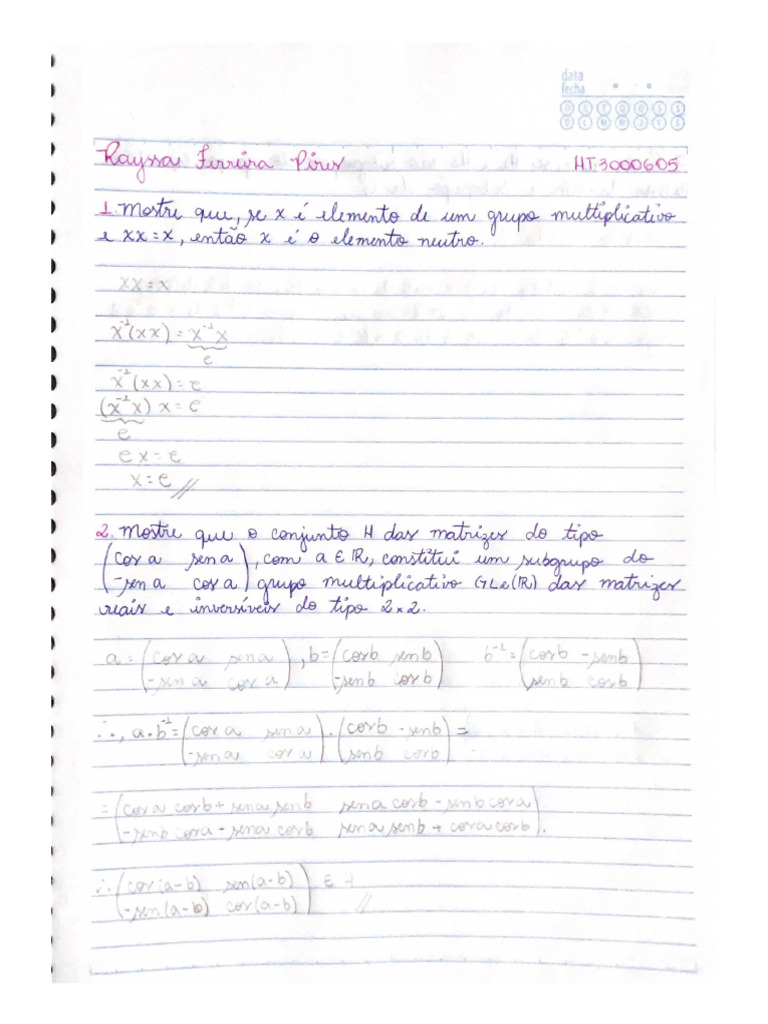 data
fecha
D S T Q Q S S
D L M M J V S
Rayssa Ferreira Pires HT3000605
1. Mostre que, se x é elemento de um grupo multiplicativo
e xx = x, então x é o elemento neutro.
xx = x
x⁻¹(xx) = x⁻¹x
e
x⁻¹(xx) = e
(x⁻¹x) x = e
e
e x = e
x = e //
2. Mostre que o conjunto H das matrizes do tipo
(cos a sen a), com a ∈ ℝ, constitui um subgrupo do
(-sen a cos a) grupo multiplicativo GL₂(ℝ) das matrizes
reais e inversíveis do tipo 2×2.
a = (cos a sen a), b = (cos b sen b) b⁻¹ = (cos b -sen b)
(-sen a cos a) (-sen b cos b) (sen b cos b)
∴, a·b⁻¹ = (cos a sen a) · (cos b -sen b) =
(-sen a cos a) (sen b cos b)
= (cos a cos b + sen a sen b sen a cos b - sen b cos a)
(-sen b cos a - sen a cos b sen a sen b + cos a cos b).
∴ (cos(a-b) sen(a-b)) ∈ H
(-sen(a-b) cos(a-b)) //